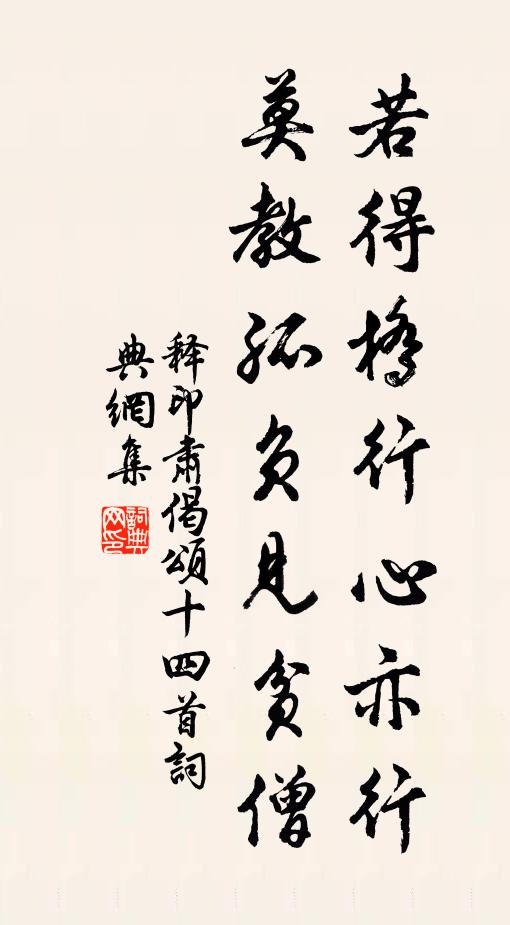 若得橋行心亦行
莫教孤負見貧僧
释印肃偈頌十四首詞
典網集
詞典
网印